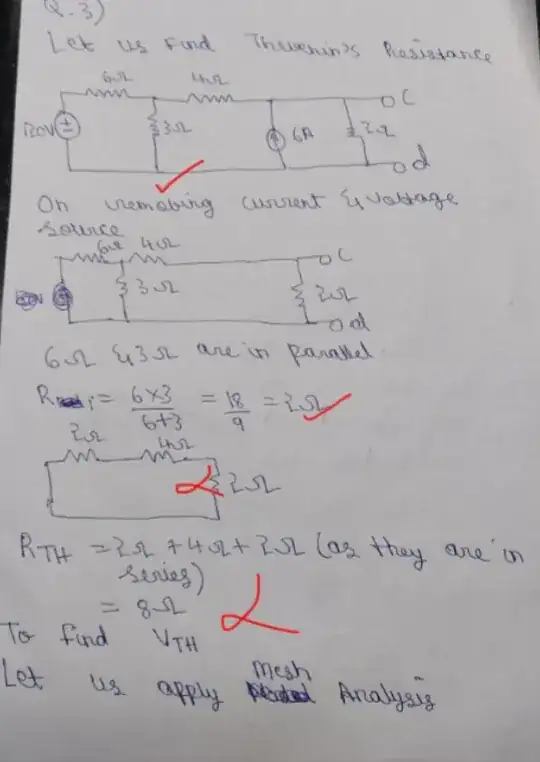 Q.3)
Let us find Thevenin's Resistance
6Ω 4Ω
120V 3Ω 6A 2Ω C
d
On remobing current & voltage
source
6Ω 4Ω
3Ω 2Ω C
d
6Ω & 3Ω are in parallel.
= 6×3/6+3 = 18/9 = 2Ω
2Ω 4Ω
2Ω
RTH = 2Ω + 4Ω + 2Ω (as they are in
series)
= 8Ω
To find VTH
Let us apply mesh Analysis